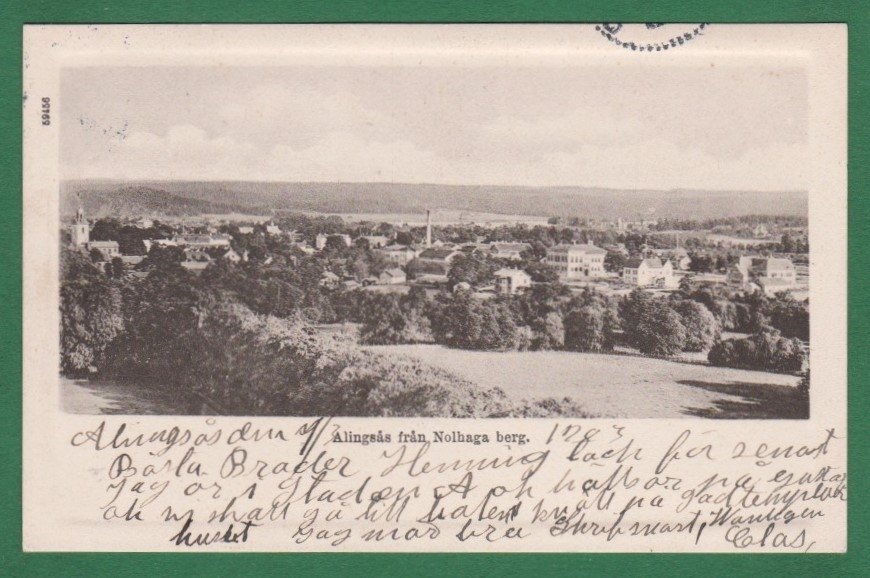 59456
Alingsås från Nolhaga berg.
Alingsås den 1/7 1903
Bästa Broder Henning tack för senast
Jag är i Staden A och håller på
och vi skall gå till kalens kväll på godtemplar
huset Jag mår bra Skrif snart, Vänligen
Clas,